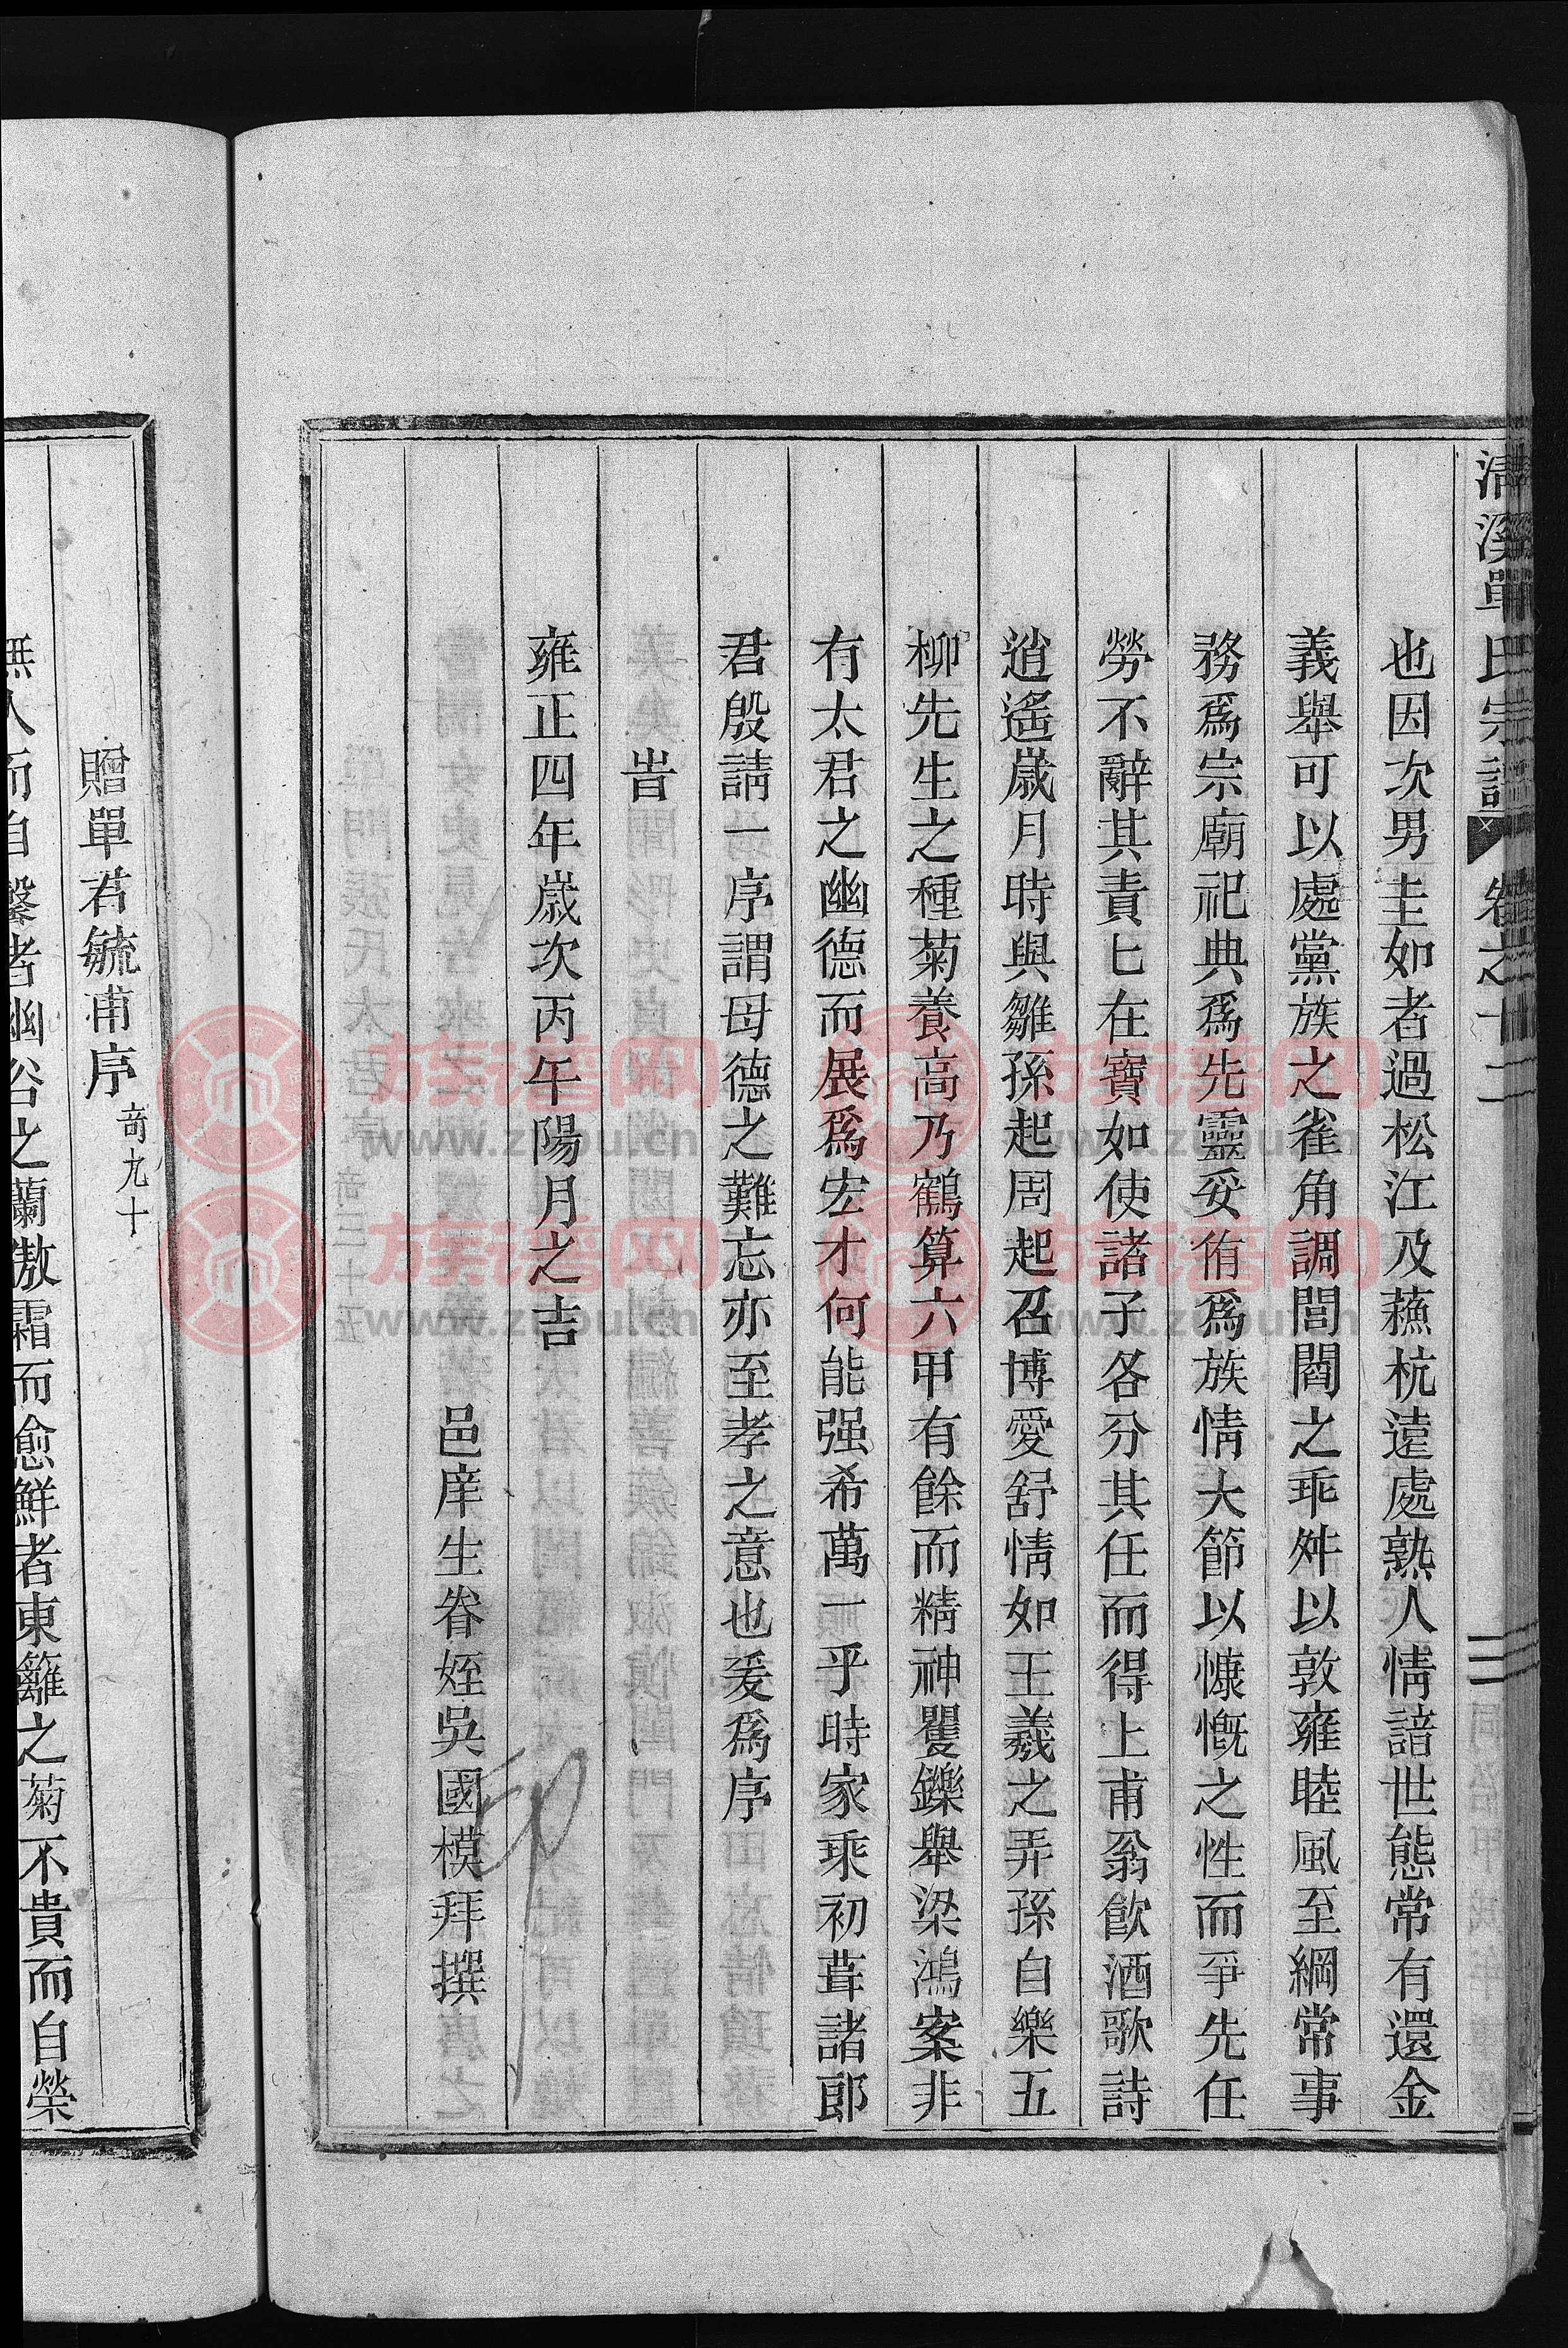 清溪單氏宗譜 卷之十二 二
也因次男圭如者過松江及蘓杭遠處熟人情諳世態常有還金
義舉可以處黨族之雀角調閭閻之乖舛以敦雍睦風至綱常事
務爲宗廟祀典爲先靈妥侑爲族情大節以慷慨之性而爭先任
勞不辭其責匕在寶如使諸子各分其任而得上甫翁飲酒歌詩
逍遙歲月時與雛孫起周起召博愛舒情如王羲之弄孫自樂五
柳先生之種菊養高乃鶴算六甲有餘而精神矍鑠舉梁鴻案非
有太君之幽德而展爲宏才何能强希萬一乎時家乘初葺諸郎
君殷請一序謂母德之難忘亦至孝之意也爰爲序
旹
雍正四年歲次丙午陽月之吉
邑庠生眷姪吳國模拜撰
贈單君毓甫序 奇九十
無人而自馨者幽谷之蘭傲霜而愈鮮者東籬之菊不貴而自榮
族谱网
www.zupu.cn
族谱网
www.zupu.cn
族谱网
www.zupu.cn
族谱网
www.zupu.cn